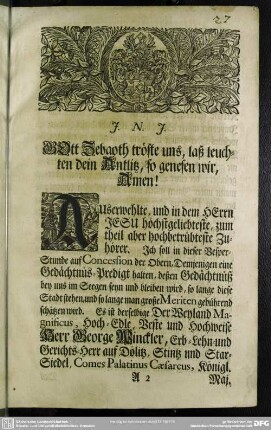 27
J. N. J.
GOtt Zebaoth tröste uns, laß leuch-
ten dein Antlitz, so genesen wir,
Amen!
AUserwehlte, und in dem HErrn
JESU höchstgeliebteste, zum
theil aber hochbetrübteste Zu-
hörer. Ich soll in dieser Vesper-
Stunde auf Concession der Obern, Demjenigen eine
Gedächtniß-Predigt halten, dessen Gedächtniß
bey uns im Seegen seyn und bleiben wird, so lange diese
Stadt stehen, und so lange man große Meriten gebührend
schätzen wird. Es ist derselbige Der Weyland Ma-
gnificus, Hoch-Edle, Veste und Hochweise
Herr George Winckler, Erb-Lehn-und
Gerichts-Herr auf Dölitz, Stüntz und Star-
Siedel, Comes Palatinus Cæsareus, Königl.
A 2 Maj.